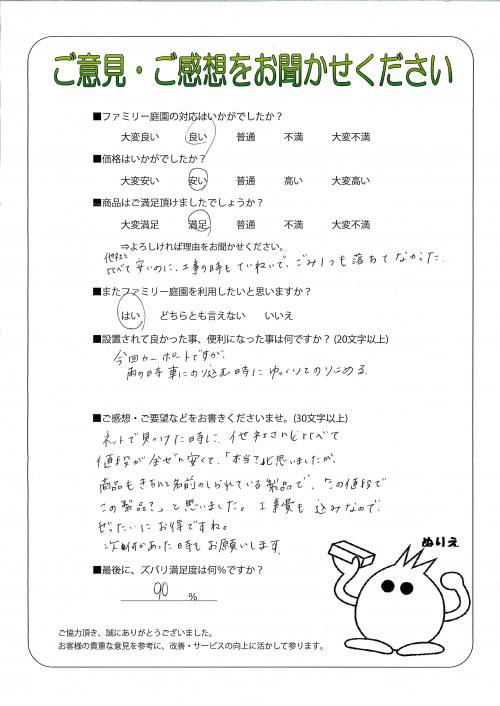 ご意見・ご感想をお聞かせください
■ファミリー庭園の対応はいかがでしたか？
大変良い 良い 普通 不満 大変不満
■価格はいかがでしたか？
大変安い 安い 普通 高い 大変高い
■商品はご満足頂けましたでしょうか？
大変満足 満足 普通 不満 大変不満
⇒よろしければ理由をお聞かせください。
他社と
比べて安いのに、工事の時もていねいで、ごみ1つも落ちてなかった。
■またファミリー庭園を利用したいと思いますか？
はい どちらとも言えない いいえ
■設置されて良かった事、便利になった事は何ですか？(20文字以上)
今回カーポートですが、
雨の日時 車にのり込む時に ゆっくりとのりこめる
■ご感想・ご要望などをお書きくださいませ。(30文字以上)
ネットで見つけた時に、他社さんと比べて
値段が全ぜん安くて、「本当？」と思いましたが、
商品もきちんと名前のしられている製品で、「この値段で
この製品？」と思いました。工事費も込みなので、
ぜったいにお得ですね。
次回があった時もお願いします
■最後に、ズバリ満足度は何％ですか？
90 %
ぬりえ
ご協力頂き、誠にありがとうございました。
お客様の貴重な意見を参考に、改善・サービスの向上に活かして参ります。